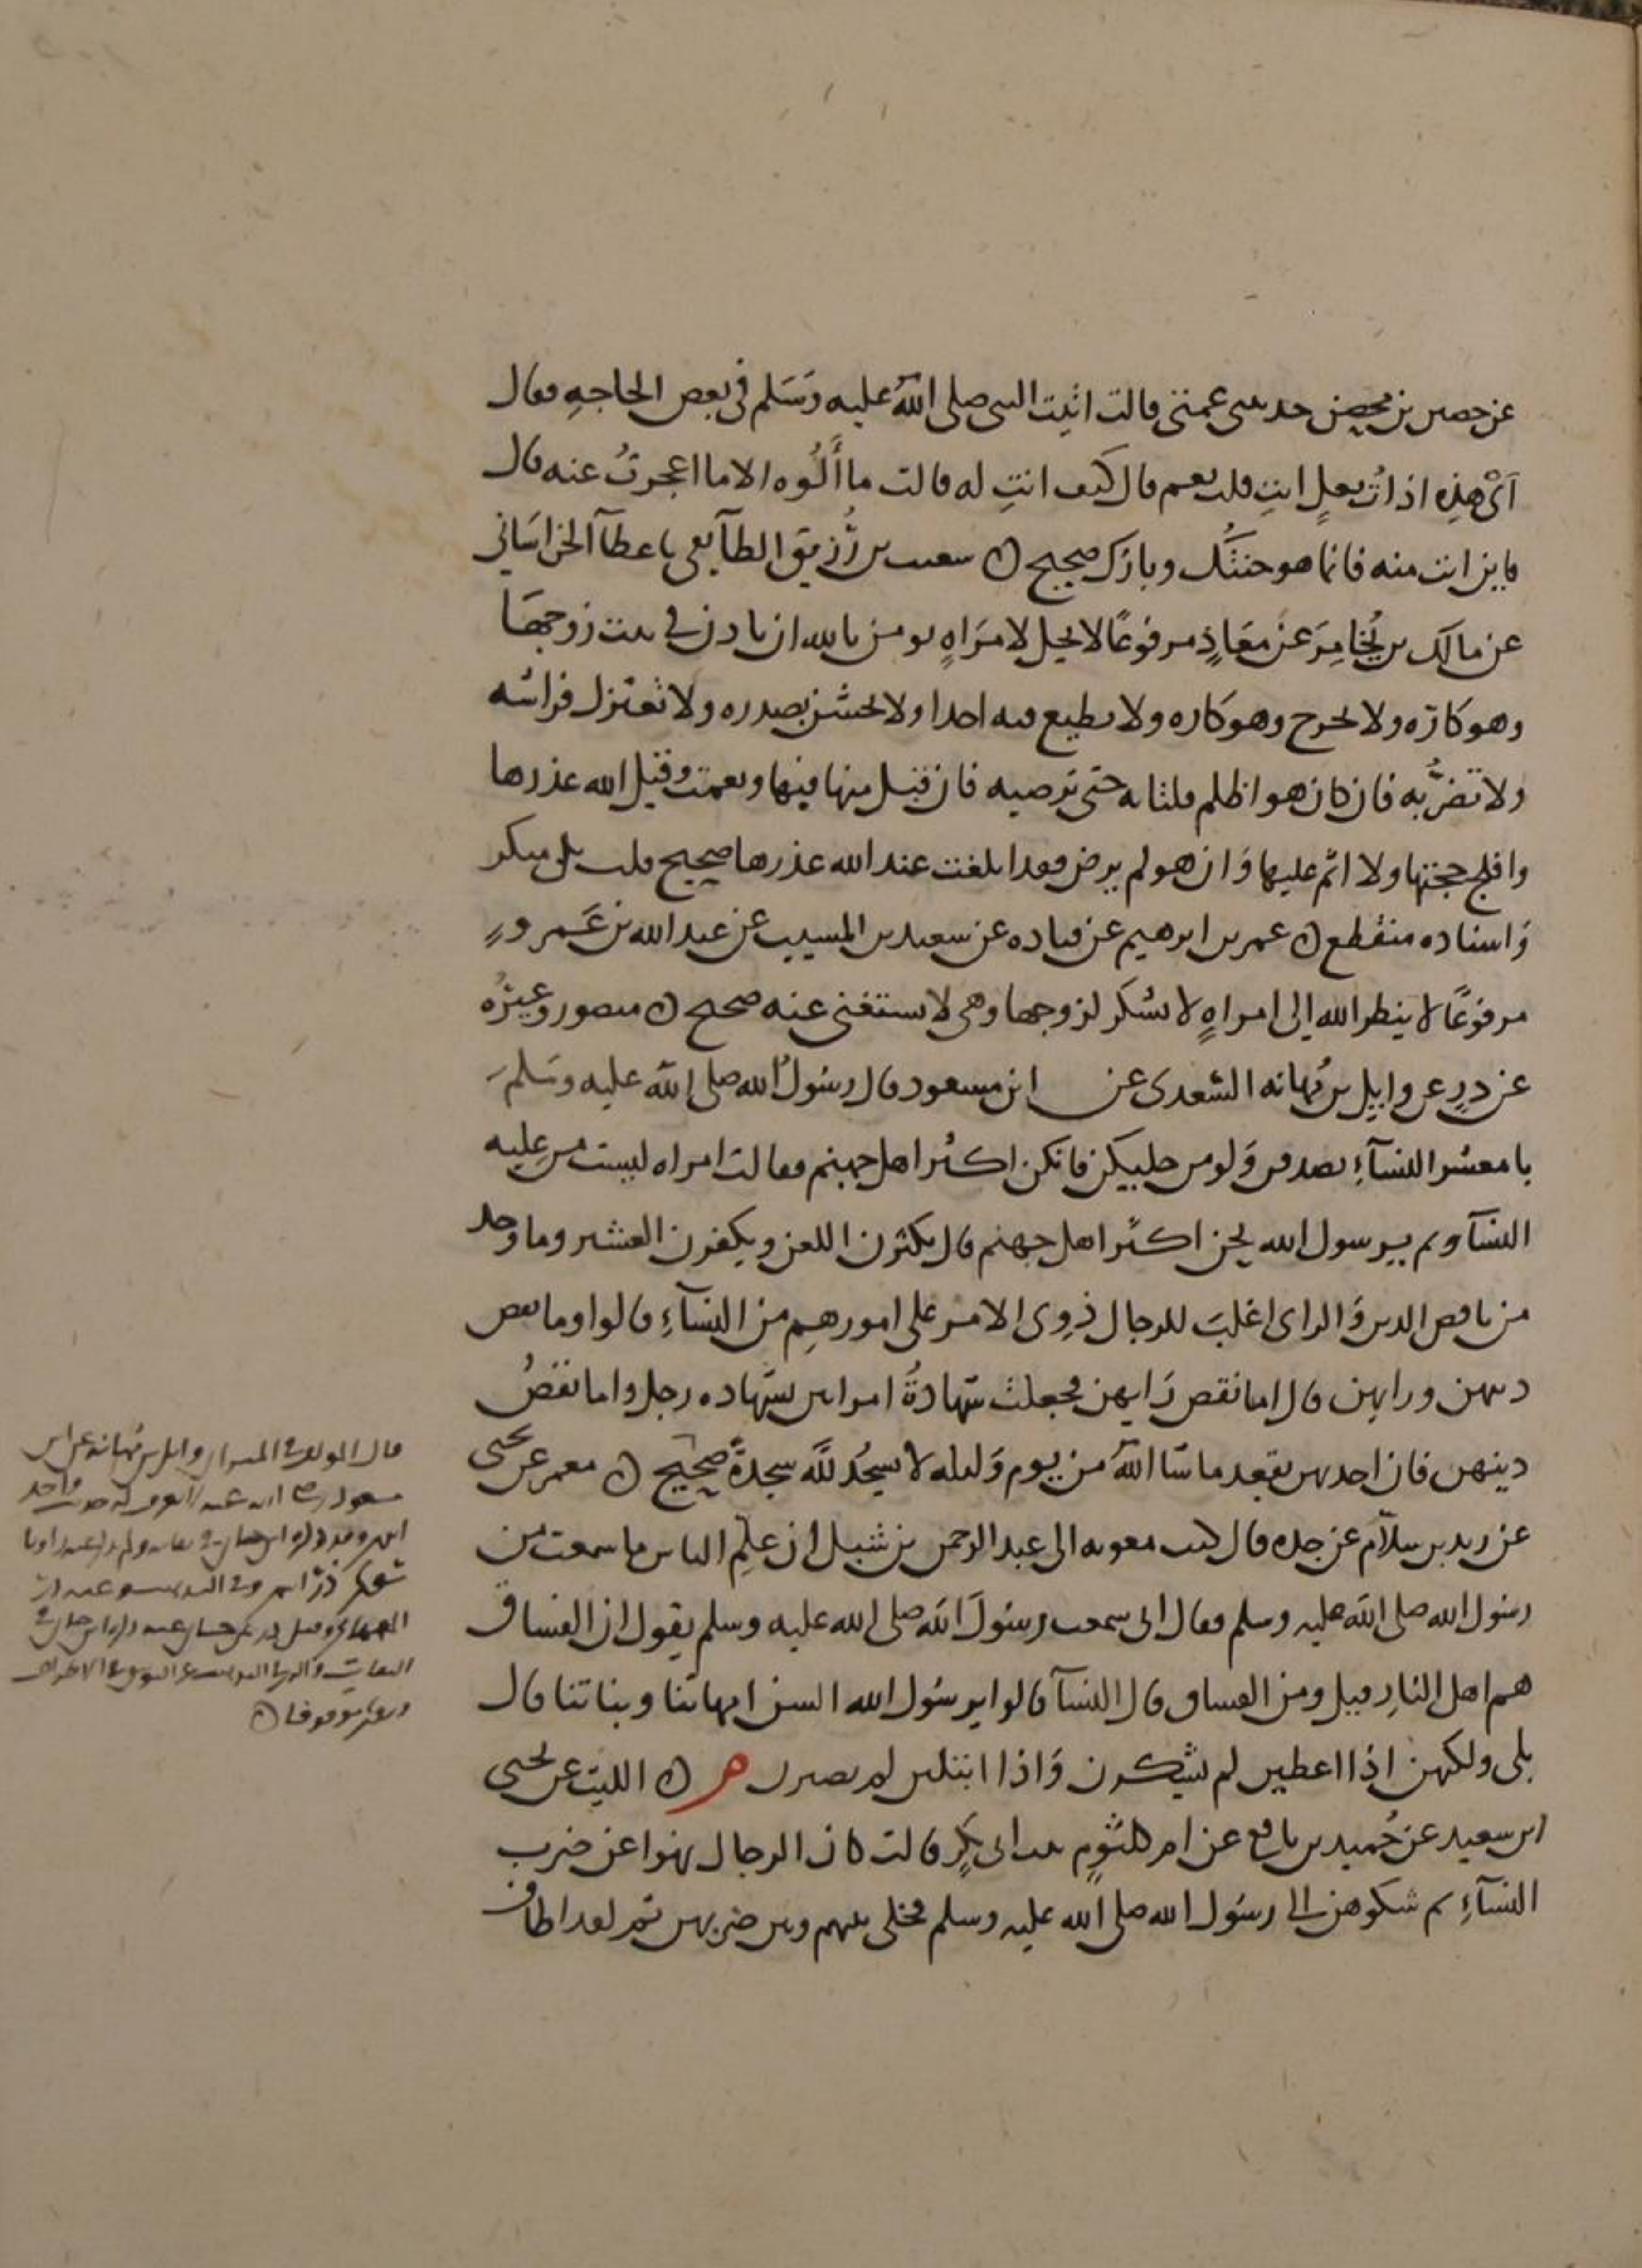 عن حصين بن محصن حدثتنى عمتى قالت اتيت النبى صلى الله عليه وسلم فى بعض الحاجه فقال
اى هذه اذات بعل انت قلت نعم قال كيف انت له قالت ما ألوه الا ما اعجزت عنه قال
فاين انت منه فانما هو جنتك ونارك صحيح ن شعيب بن رزيق الطائفى نا عطآ الخراسانى
عن مالك بن يخامر عن معاذ مرفوعا لا يحل لامراه تومن بالله ان تاذن فى بيت زوجها
وهو كاره ولا تخرج وهو كاره ولا تطيع فيه احدا ولا تخشن بصدره ولا تعتزل فراشه
ولا تضربه فان كان هو اظلم فلتاته حتى ترضيه فان قبل منها فبها ونعمت وقبل الله عذرها
وافلج حجتها ولا اثم عليها وان هو لم يرض فقد ابلغت عند الله عذرها صحيح قلت بل منكر
واسناده منقطع ن عمر بن ابرهيم عن قتاده عن سعيد بن المسيب عن عبد الله بن عمرو
مرفوعا لا ينظر الله الى امراه لا تشكر لزوجها وهى لا تستغنى عنه صحيح ن منصور وغيره
عن ذر عن وايل بن مهانه السعدى عن ابن مسعود قال رسول الله صلى الله عليه وسلم
يا معشر النسآء تصدقن ولو من حليكن فانكن اكثر اهل جهنم فقالت امراه ليست من عليه
النسآ وبم يرسول الله نحن اكثر اهل جهنم قال تكثرن اللعن وتكفرن العشير وما وجد
من ناقص الدين والراى اغلب للرجال ذوى الامر على امورهم من النسآء قالوا وما نقص
دينهن ورايهن قال اما نقص رايهن فجعلت شهادة امراتين بشهاده رجل واما نقص
دينهن فان احديهن تقعد ما شا الله من يوم وليله لا تسجد لله سجدة صحيح ن معمر عن يحيى
عن زيد بن سلام عن جده قال كتب معويه الى عبد الرحمن بن شبل ان علم الناس ما سمعت من
رسول الله صلى الله عليه وسلم فقال انى سمعت رسول الله صلى الله عليه وسلم يقول ان الفساق
هم اهل النار قيل ومن الفساق قال النسآ قالوا يرسول الله السن امهاتنا وبناتنا قال
بلى ولكنهن اذا اعطين لم يشكرن واذا ابتلين لم يصبرن م ن الليث عن يحيى
ابن سعيد عن حميد بن نافع عن ام كلثوم بنت ابى بكر قالت كان الرجال نهوا عن ضرب
النسآء ثم شكوهن الى رسول الله صلى الله عليه وسلم فخلى بينهم وبين ضربهن ثم لقد اطاف
قال المولف فى الميزان وايل بن مهانه عن ابن
مسعود رضى الله عنه لا يعرف له حديث واحد